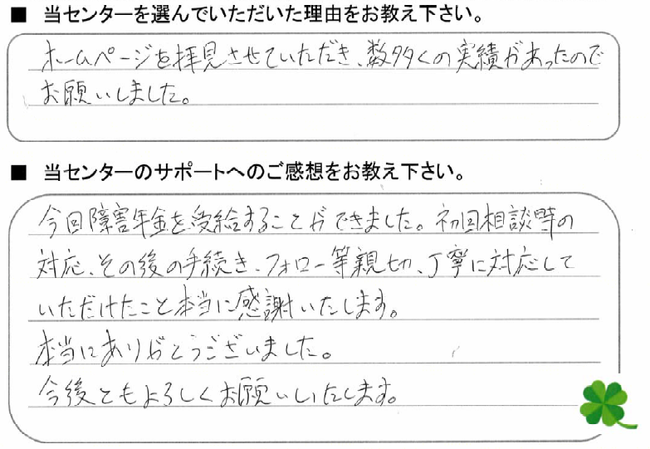 ■ 当センターを選んでいただいた理由をお教え下さい。
ホームページを拝見させていただき、数多くの実績があったので
お願いしました。
■ 当センターのサポートへのご感想をお教え下さい。
今回障害年金を受給することができました。初回相談時の
対応、その後の手続き、フォロー等親切、丁寧に対応して
いただけたこと本当に感謝いたします。
本当にありがとうございました。
今後ともよろしくお願いいたします。